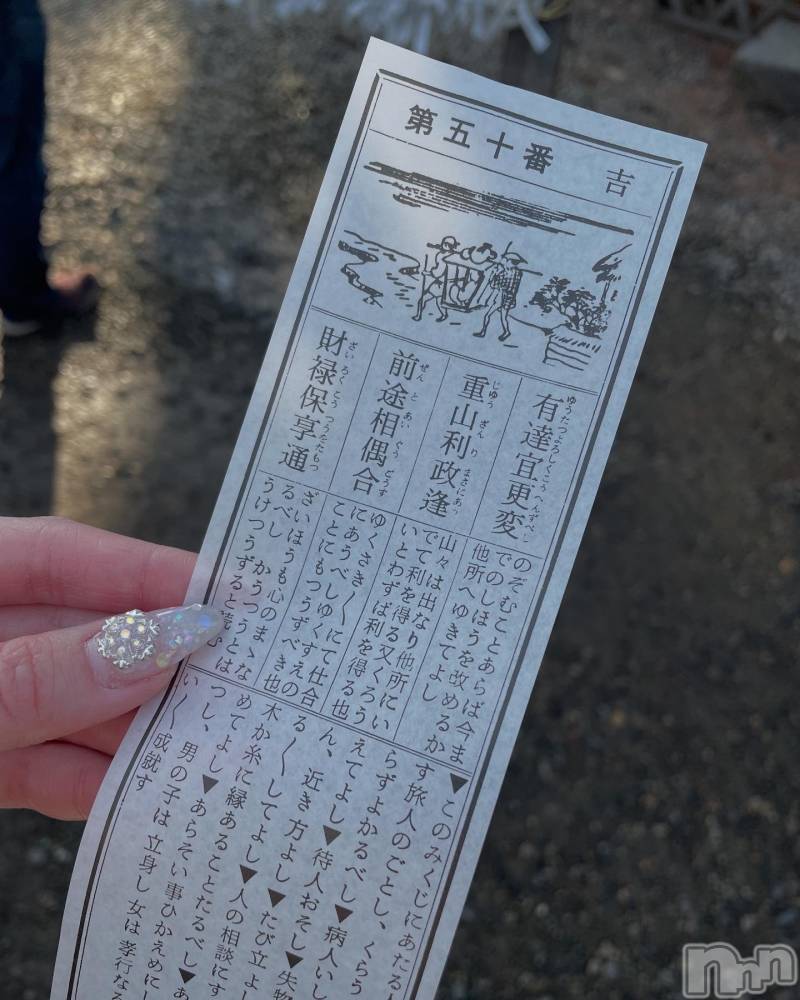 第五十番 吉
有達宜更変
ゆうたつよろしくこうへんすべし
重山利政逢
じゆうざんりまさにあつ
前途相偶合
ぜんとあいぐうどうす
財禄保享通
ざいろくとうつうをたもつ
のぞむことあらば今ま
でのしほうを改めるか
他所へゆきてよし
山々は出なり他所にい
でて利を得る又くろう
いとわずば利を得る也
ゆくさき〱にて仕合
にあうべしゆくすえの
ことにもつうずべき也
ざいほうも心のまゝな
るべし かうつうとは
うけつうずると読む
▼このみくじにあたる人
す旅人のごとし、くらう
らずよかるべし▼病人いし
えてよし▼待人おそし▼失物
ん、近き方よし▼たび立よし
る〱してよし▼人の相談にす
木か糸に縁あることたるべし▼あ
めてよし▼あらそい事ひかえめにし
つし、▼男の子は立身し女は孝行なる
い〱成就す
nnn